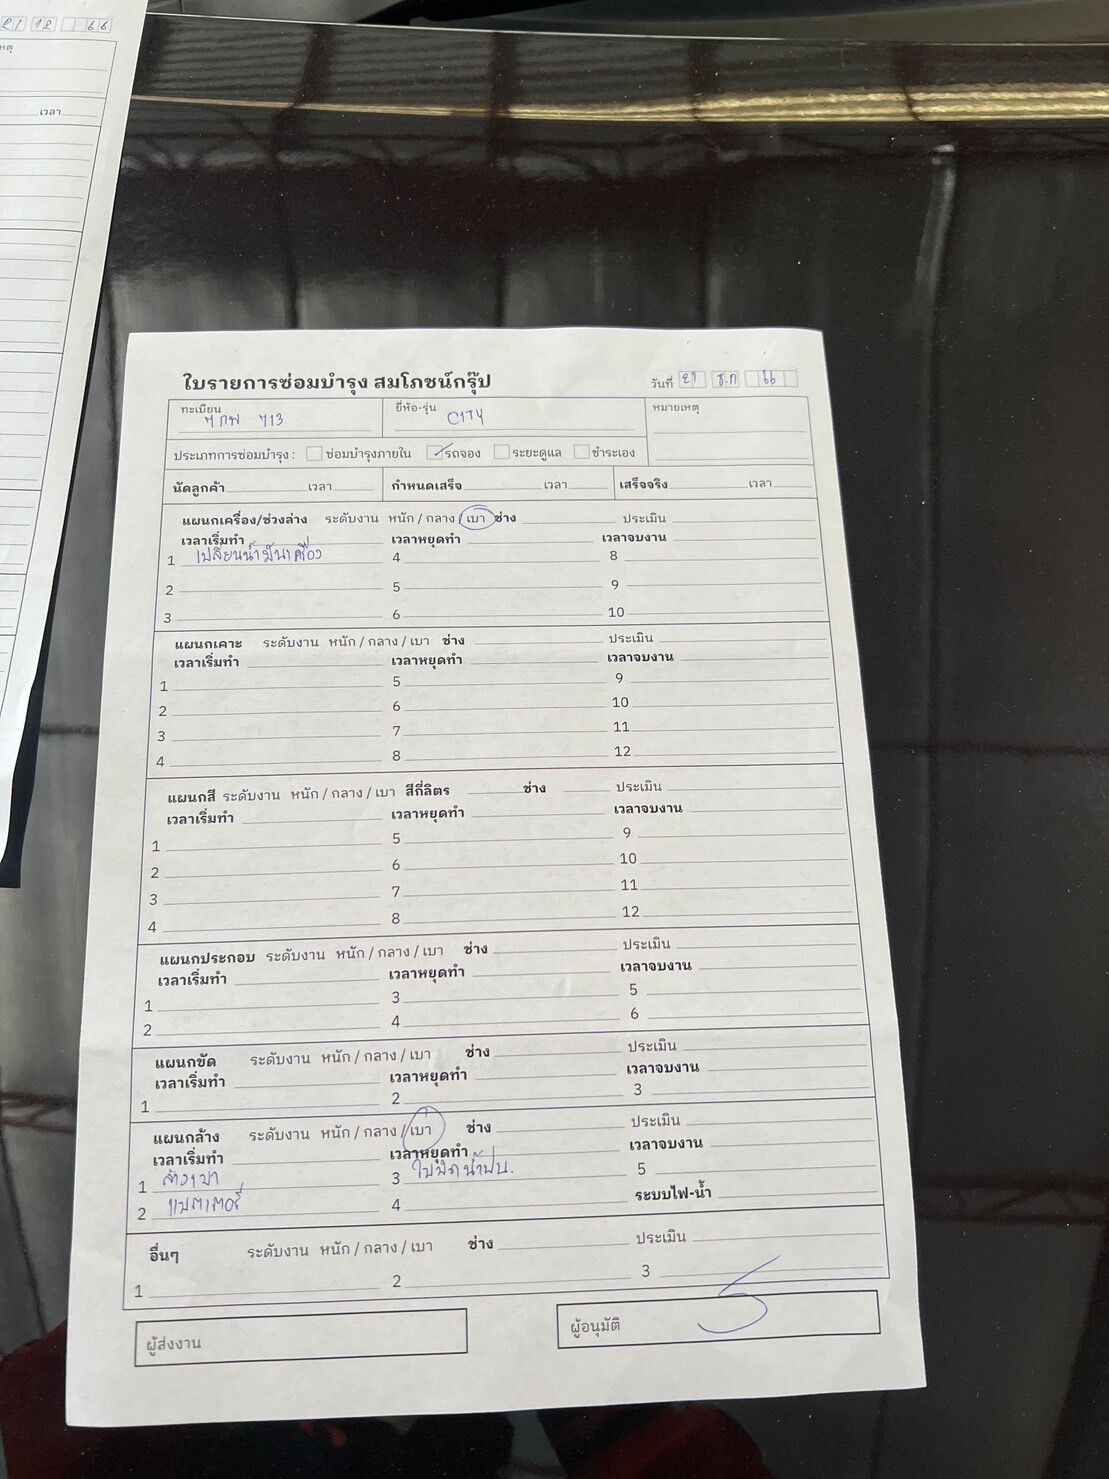 21 12 66
เวลา
ใบรายการซ่อมบำรุง สมโภชน์กรุ๊ป วันที่ 21 ธ.ค 66
ทะเบียน ยี่ห้อ-รุ่น หมายเหตุ
713 CITY
ประเภทการซ่อมบำรุง : ซ่อมบำรุงภายใน รถจอง ระยะดูแล ชำระเอง
นัดลูกค้า เวลา กำหนดเสร็จ เวลา เสร็จจริง เวลา
แผนกเครื่อง/ช่วงล่าง ระดับงาน หนัก / กลาง / เบา ช่าง ประเมิน
เวลาเริ่มทำ เวลาหยุดทำ เวลาจบงาน
1 เปลี่ยนน้ำมันเครื่อง 4 8
2 5 9
3 6 10
แผนกเคาะ ระดับงาน หนัก / กลาง / เบา ช่าง ประเมิน
เวลาเริ่มทำ เวลาหยุดทำ เวลาจบงาน
1 5 9
2 6 10
3 7 11
4 8 12
แผนกสี ระดับงาน หนัก / กลาง / เบา สีกี่ลิตร ช่าง ประเมิน
เวลาเริ่มทำ เวลาหยุดทำ เวลาจบงาน
1 5 9
2 6 10
3 7 11
4 8 12
แผนกประกอบ ระดับงาน หนัก / กลาง / เบา ช่าง ประเมิน
เวลาเริ่มทำ เวลาหยุดทำ เวลาจบงาน
1 3 5
2 4 6
แผนกขัด ระดับงาน หนัก / กลาง / เบา ช่าง ประเมิน
เวลาเริ่มทำ เวลาหยุดทำ เวลาจบงาน
1 2 3
แผนกล้าง ระดับงาน หนัก / กลาง / เบา ช่าง ประเมิน
เวลาเริ่มทำ เวลาหยุดทำ เวลาจบงาน
1 ล้างเบา 3 ใบปัดน้ำฝน. 5
2 แบตเตอรี่ 4 ระบบไฟ-น้ำ
อื่นๆ ระดับงาน หนัก / กลาง / เบา ช่าง ประเมิน
1 2 3
ผู้ส่งงาน ผู้อนุมัติ